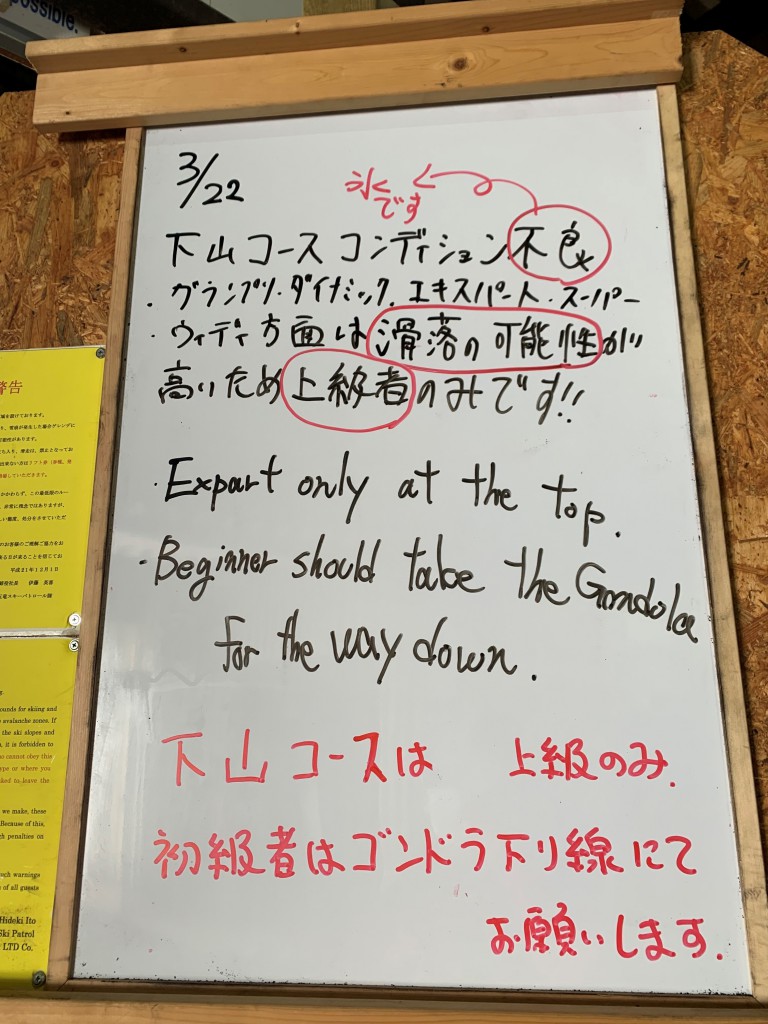 possible.
3/22
氷です
下山コースコンディション不良
・グランプリ・ダイナミック.エキスパート・スーパー
・ウッディ方面は滑落の可能性が
高いため上級者のみです!!
・Expart only at the top.
・Beginner should take the Gondola
for the way down.
下山コースは 上級のみ.
初級者はゴンドラ下り線にて
お願いします.
警告
平成21年12月1日
伊藤 英喜
ounds for skiing and
avalanche zones. If
the ski slopes and
, it is forbidden to
o cannot obey this
ype or where you
ked to leave the
we make, these
Because of this,
ch penalties on
ch warnings
of all guests
Hideki Ito
Ski Patrol
LTD Co.